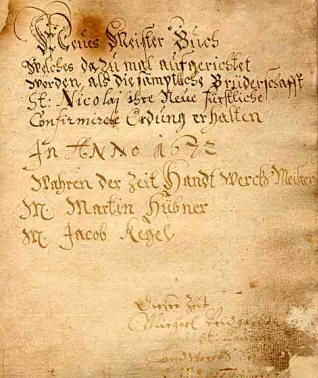 Neues Meister Buch
Welches dazumal auffgerichtet
worden, als die sämptliche Brüderschafft
St: Nicolaj ihre Neue fürstliche
Confirmirete Ordung erhalten
In ANNo 1672
Wahren der Zeit Handt Wercks Meister
M. Martin Hübner
M. Jacob Kegel
Dieser Zeit